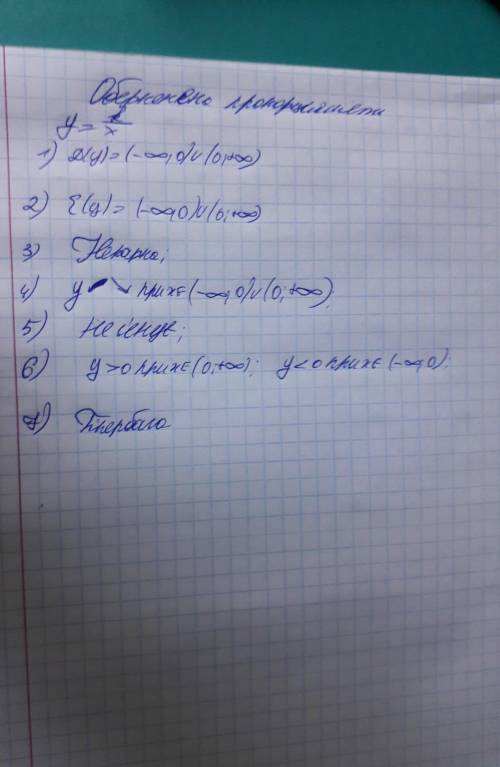 Обернено пропорційність
y = k/x
1) D(y) = (-∞; 0) ∪ (0; +∞)
2) E(y) = (-∞; 0) ∪ (0; +∞)
3) Непарна;
4) y ↘ при x ∈ (-∞; 0) ∪ (0; +∞)
5) Не існує;
6) y > 0 при x ∈ (0; +∞); y < 0 при x ∈ (-∞; 0);
7) Гіпербола